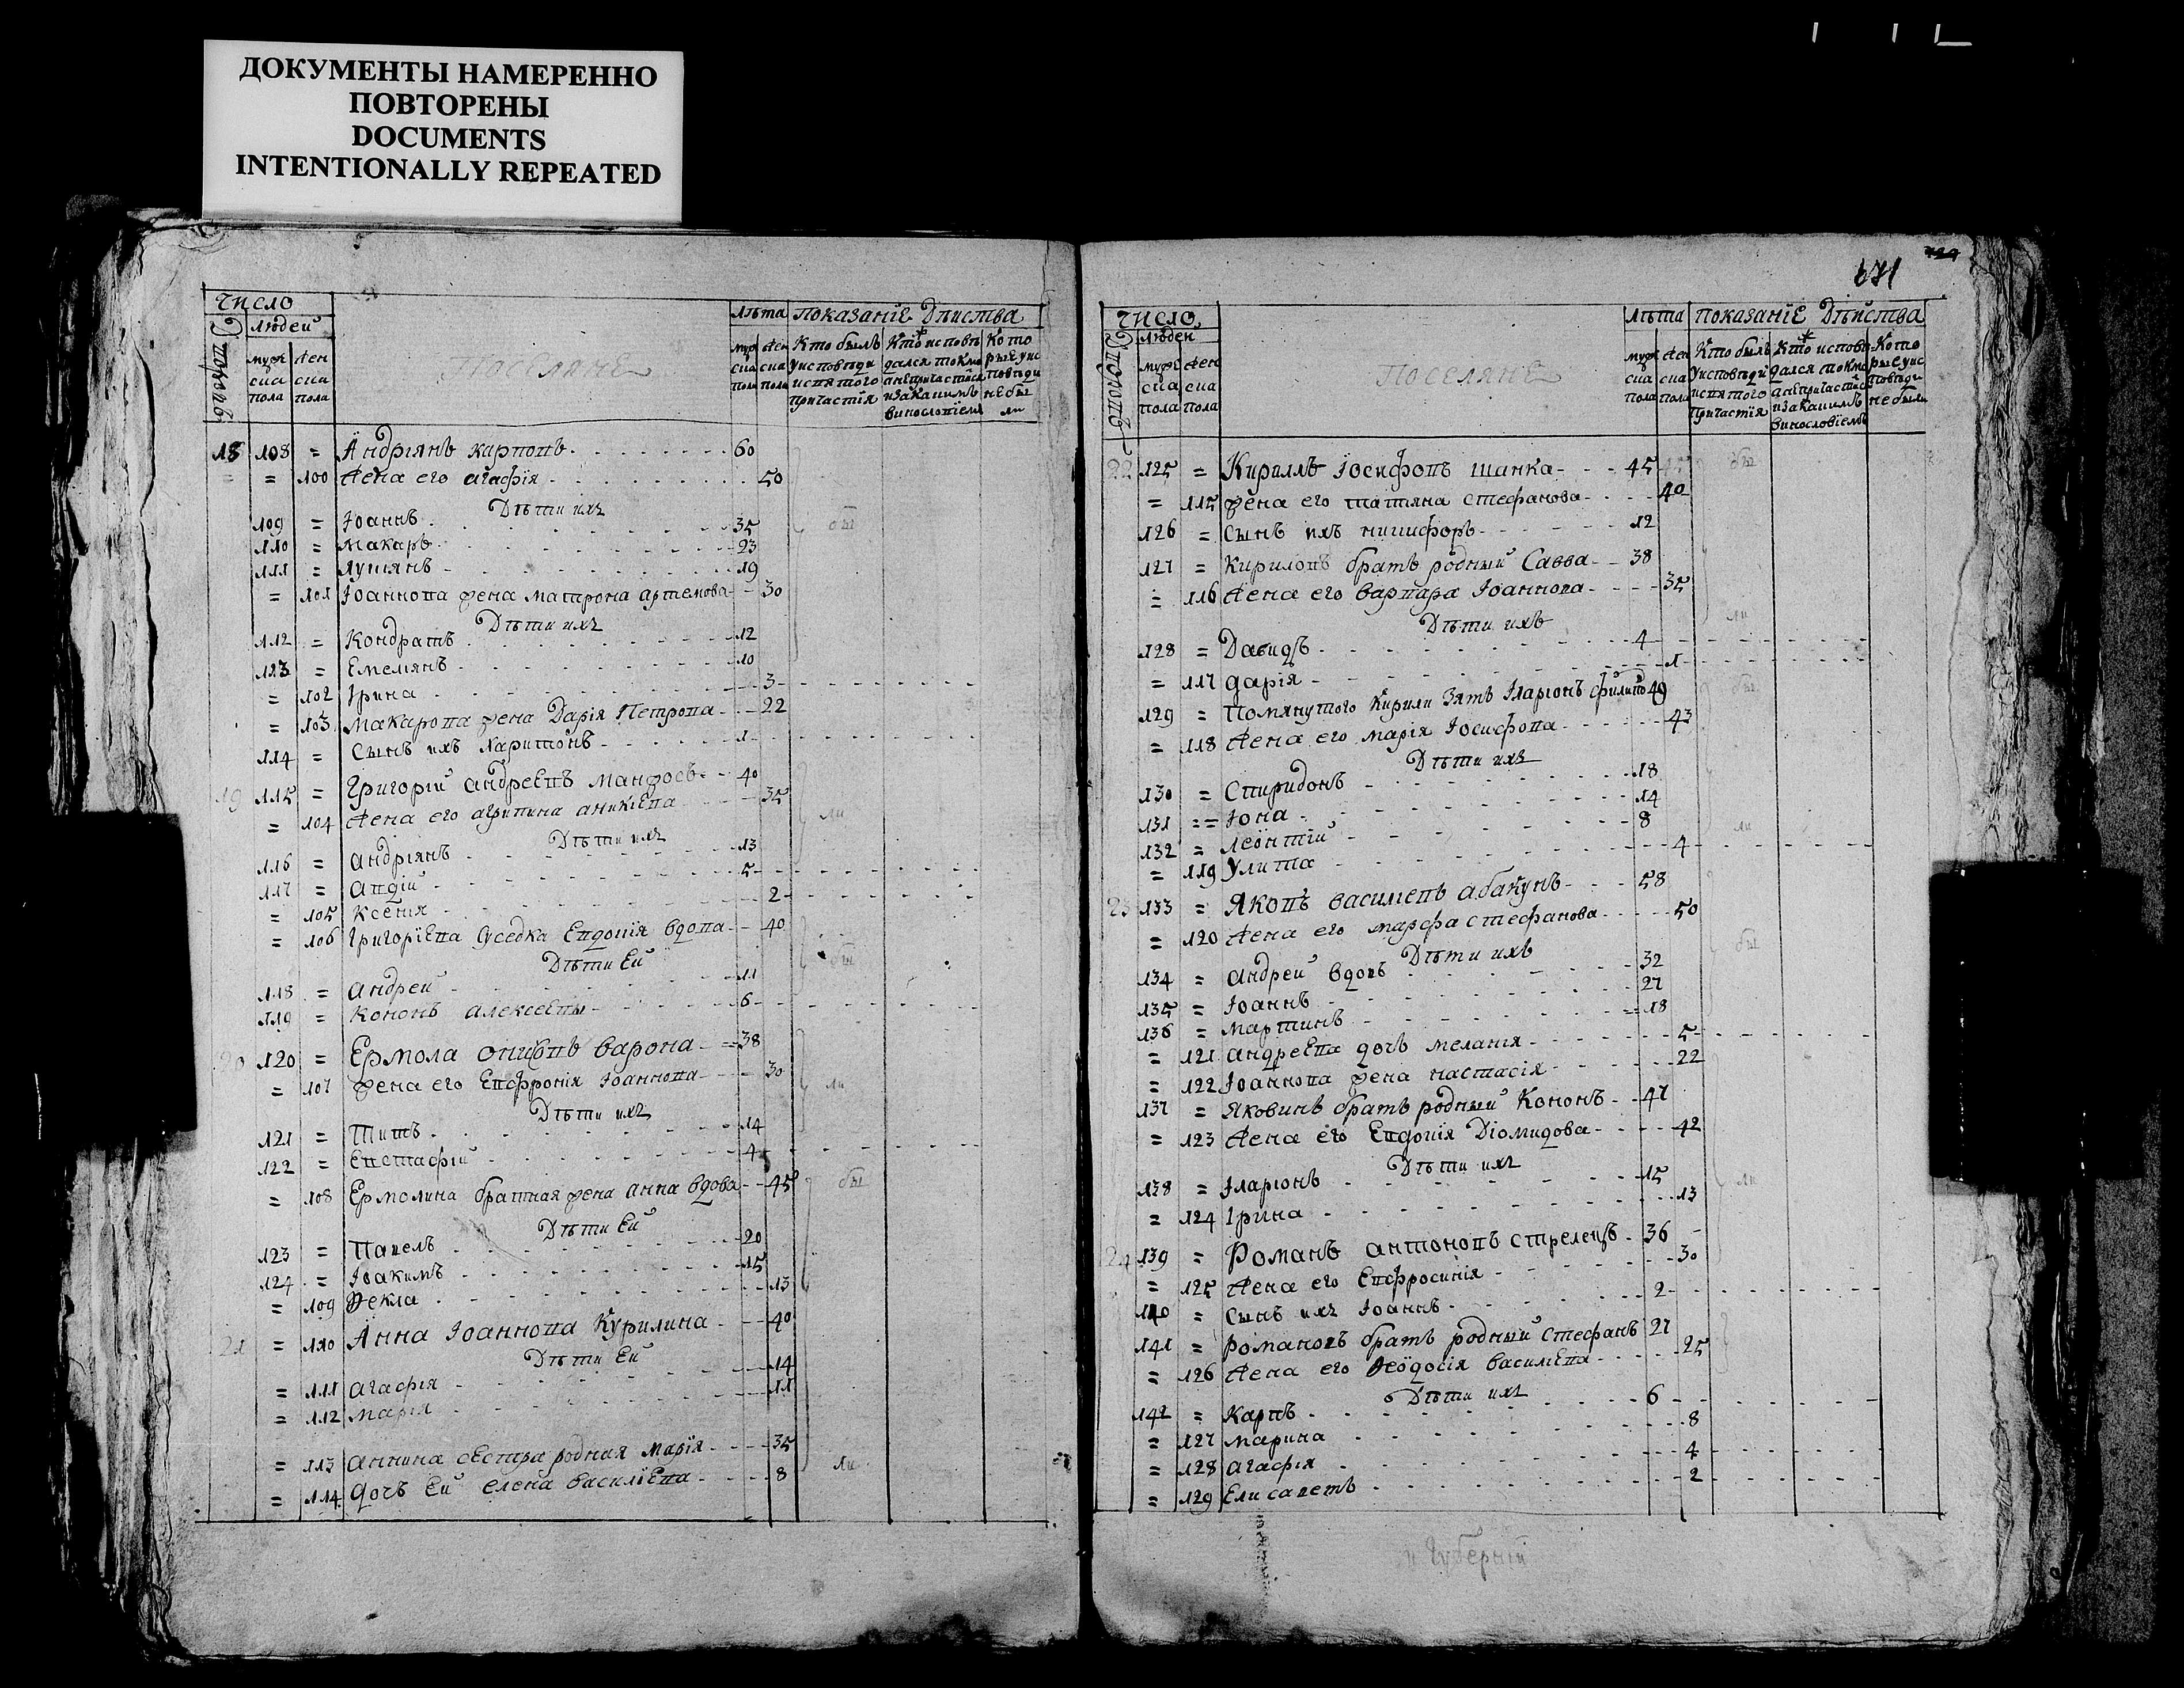 ДОКУМЕНТЫ НАМЕРЕННО
ПОВТОРЕНЫ
DOCUMENTS
INTENTIONALLY REPEATED
число
людей
Дворовъ
мужска пола
женска пола
Поселяне
лѣта
мужска пола
женска пола
показаніе Дѣиства
Кто былъ у исповѣди и святого причастія
Кто исповѣдался токмо а не причастился и за какимъ винословіемъ
Которые у исповѣди не были
18 108 = Андріянъ карповъ 60
= = 100 Жена его агафія 50
Дѣти ихъ
109 = Іоаннъ 35 бы
110 = Макаръ 23
111 = Лукіянъ 19
= 101 Іоаннова жена матрона артемова 30
Дѣти ихъ
112 = Кондратъ 12
113 = Емеліянъ 10
= 102 Ірина 3
= 103 Макарова жена Дарія Петрова 22
114 = Сынъ ихъ Харитонъ 1
19 115 = Григорій андреевъ манфосъ 40
= 104 Жена его агрипина аникіева 35 ли
Дѣти ихъ
116 = андріянъ 13
117 = авдій 5
= 105 Ксенія 2
= 106 Григоріева суседка Евдокія вдова 40
Дѣти Ей бы
118 = андрей 11
119 = Кононъ алексеевы 6
20 120 = Ермола онисковъ варона 38
= 107 жена его Евфронія Іоаннова 30 ли
Дѣти ихъ
121 = Титъ 14
122 = Евстафій 4
= 108 Ермолина братная жена анна вдова 45 бы
Дѣти Ей
123 = Павелъ 20
124 = Іоакимъ 15
= 109 Фекла 13
21 = 110 Анна Іоаннова Курилина 40
Дѣти Ей
= 111 агафія 14
= 112 марія 11
= 113 аннина сестра родная Марія 35
= 114 дочь Ей елена василіева 8 ли
671
число
людей
Дворовъ
мужска пола
женска пола
Поселяне
лѣта
мужска пола
женска пола
показаніе Дѣйства
Кто былъ у исповѣди и святого причастія
Кто исповѣдался токмо а не причастился и за какимъ винословіемъ
Которые у исповѣди не были
22 125 = Кириллъ Іосифовъ шанка 45 бы
= 115 жена его татіяна стефанова 40
126 = Сынъ ихъ никифоръ 12
127 = Кириловъ братъ родный Савва 38
= 116 Жена его варвара Іоаннова 35
Дѣти ихъ ли
128 = Давидъ 4
= 117 дарія 1
129 = Помянутого Кирили зять Іларіонъ филипо 49 бы
= 118 Жена его марія Іосифова 43
Дѣти ихъ
130 = Спиридонъ 18
131 = = Іона 14
132 = Леонтій 8 ли
= 119 Улита 4
23 133 = Яковъ василіевъ абакунъ 58
= 120 Жена его марфа стефанова 50
Дѣти ихъ бы
134 = андрей вдовъ 32
135 = Іоаннъ 27
136 = мартинъ 18
= 121 андреева дочъ меланія 5
= 122 Іоаннова жена настасія 22
137 = Яковинъ братъ родный Кононъ 47
= 123 Жена его Евдокія Діомидова 42
Дѣти ихъ
138 = Іларіонъ 15 ли
= 124 Ірина 13
24 139 = Романъ антоновъ стрелецъ 36
= 125 Жена его Евфросинія 30
140 = Сынъ ихъ Іоаннъ 2
141 = Романовъ братъ родный стефанъ 27
= 126 Жена его Феодосія василіева 25
Дѣти ихъ
142 = Карпъ 6
= 127 марина 8
= 128 агафія 4
= 129 Елисаветъ 2
и Губерній